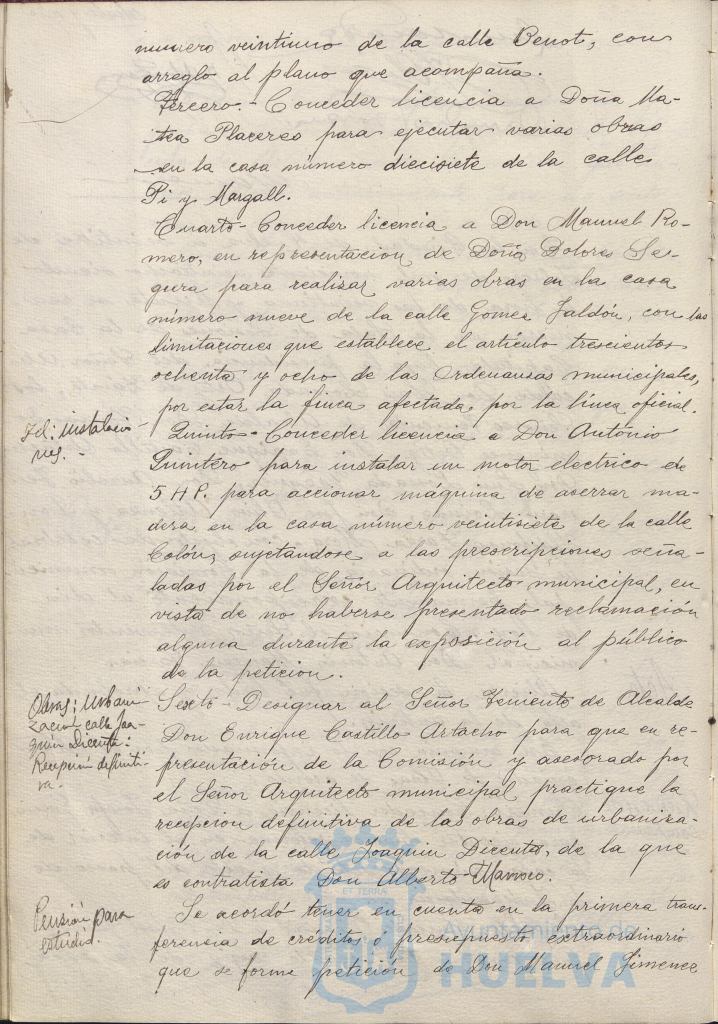 numero veintiuno de la calle Benot, con
arreglo al plano que acompaña.
Tercero.- Conceder licencia a Doña Ma-
tea Placeres para ejecutar varias obras
en la casa número diecisiete de la calle
Pi y Margall.
Cuarto- Conceder licencia a Don Manuel Ro-
mero, en representación de Doña Dolores Se-
gura para realizar varias obras en la casa
número nueve de la calle Gomez Jaldón, con las
limitaciones que establece el artículo trescientos
ochenta y ocho de las Ordenanzas municipales,
por estar la finca afectada por la línea oficial.
Id: instalacio-
nes.-
Quinto- Conceder licencia a Don António
Quintero para instalar un motor electrico de
5 HP. para accionar máquina de aserrar ma-
dera, en la casa número veintisiete de la calle
Colón, sujetándose a las prescripciones seña-
ladas por el Señor Arquitecto municipal, en
vista de no haberse presentado reclamación
alguna durante la exposición al público
de la peticion.
Obras; Urbani
zación calle Joa-
quin Dicenta:
Recepción definiti-
va.-
Sexto- Designar al Señor Teniente de Alcalde
Don Enrique Castillo Artacho para que en re-
presentación de la Comisión y asesorado por
el Señor Arquitecto municipal practique la
recepcion definitiva de las obras de urbaniza-
ción de la calle Joaquin Dicenta, de la que
es contratista Don Alberto
Pensión para
estudio.
Se acordó tener en cuenta en la primera trans-
ferencia de créditos ó presupuesto extraordinario
que se forme petición de Don Manuel Jimenez
ET TERRA
Ayuntamiento de
HUELVA